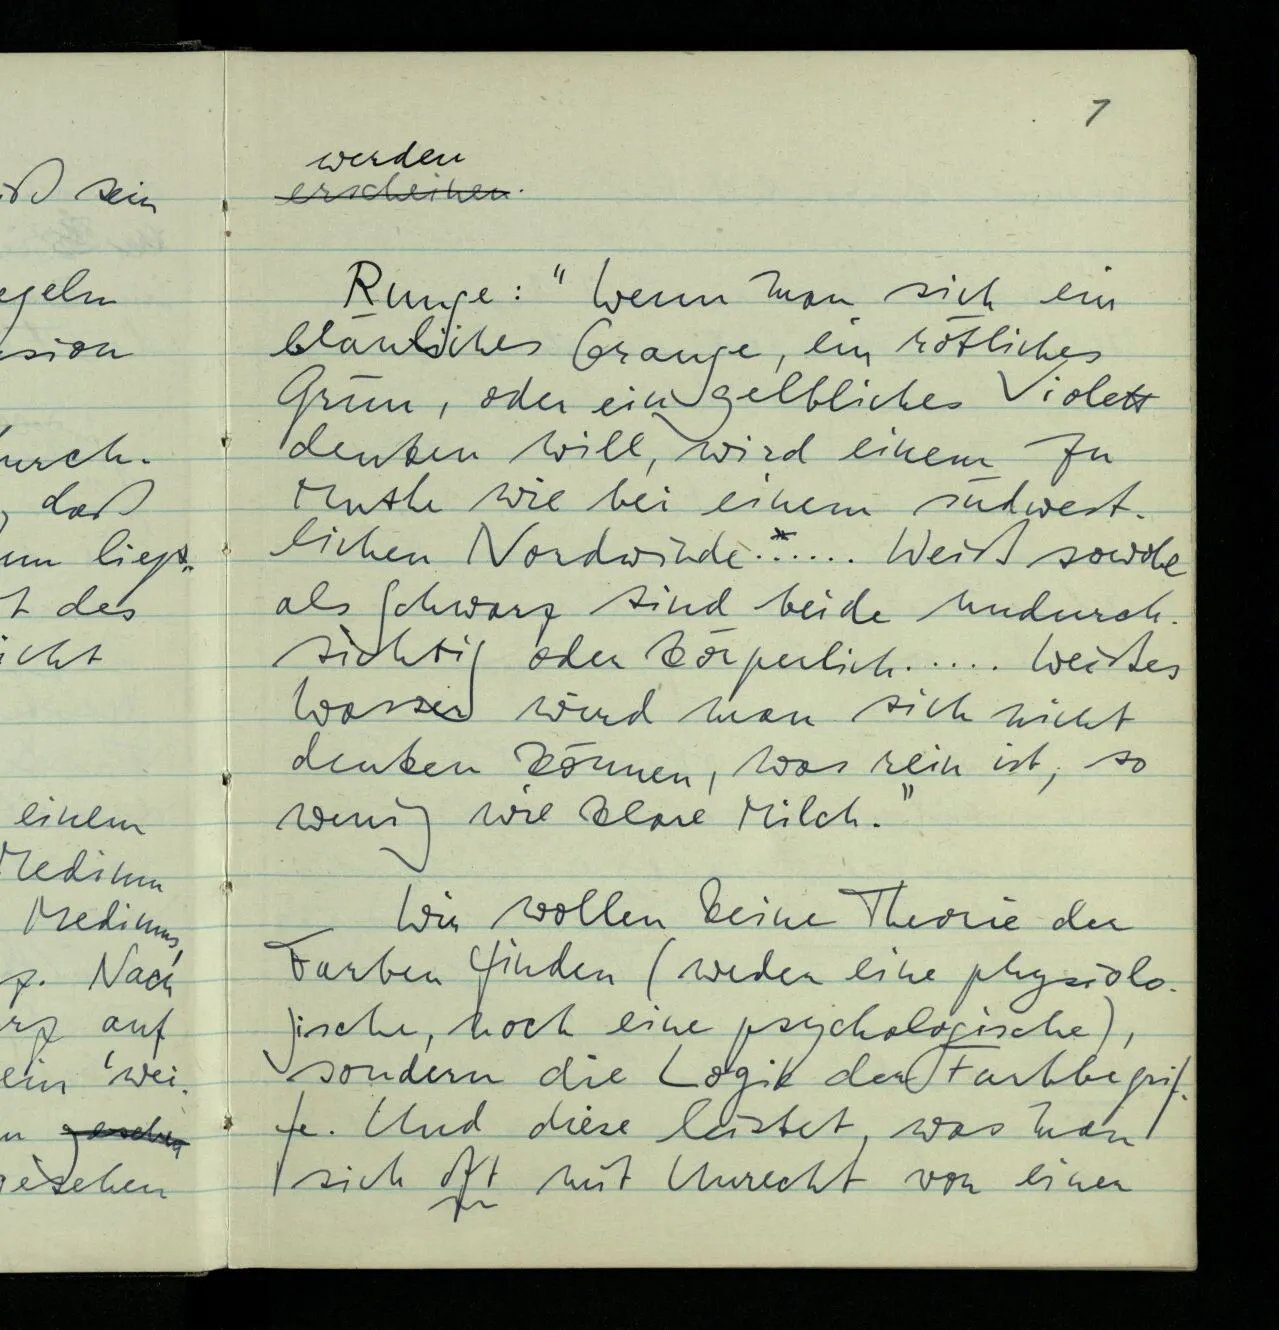 7
iß sein
egeln
sion
urch-
, daß
um liegt.
t des
icht
einem
Medium
Mediums,
z. Nach
rz auf
ein 'wei-
n gesehen
gesehen
werden
erscheinen.
Runge: "Wenn man sich ein
bläuliches Orange, ein rötliches
Grün, oder ein gelbliches Violett
denken will, wird einem zu
Muthe wie bei einem südwest-
lichen Nordwinde.*..... Weiß sowohl
als Schwarz sind beide undurch-
sichtig oder körperlich..... Weißes
Wasser wird man sich nicht
denken können, was rein ist; so
wenig wie klare Milch."
Wir wollen keine Theorie der
Farben finden (weder eine physiolo-
gische, noch eine psychologische),
sondern die Logik der Farbbegrif-
fe. Und diese leistet, was man
sich oft mit Unrecht von einer